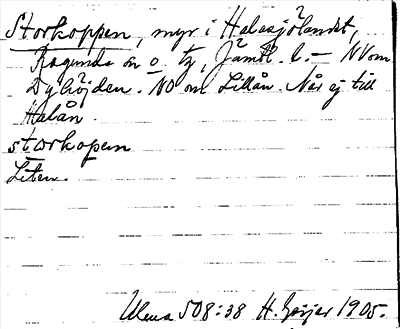 Storkoppen, myr i Halasjölandet,
Ragunda sn o. tg, Jämtl. l. — NV om
Dyhöjden. NO om Lillån. Når ej till
Halån.
storkopen
Liten.
508:38 H. Geijer 1905.